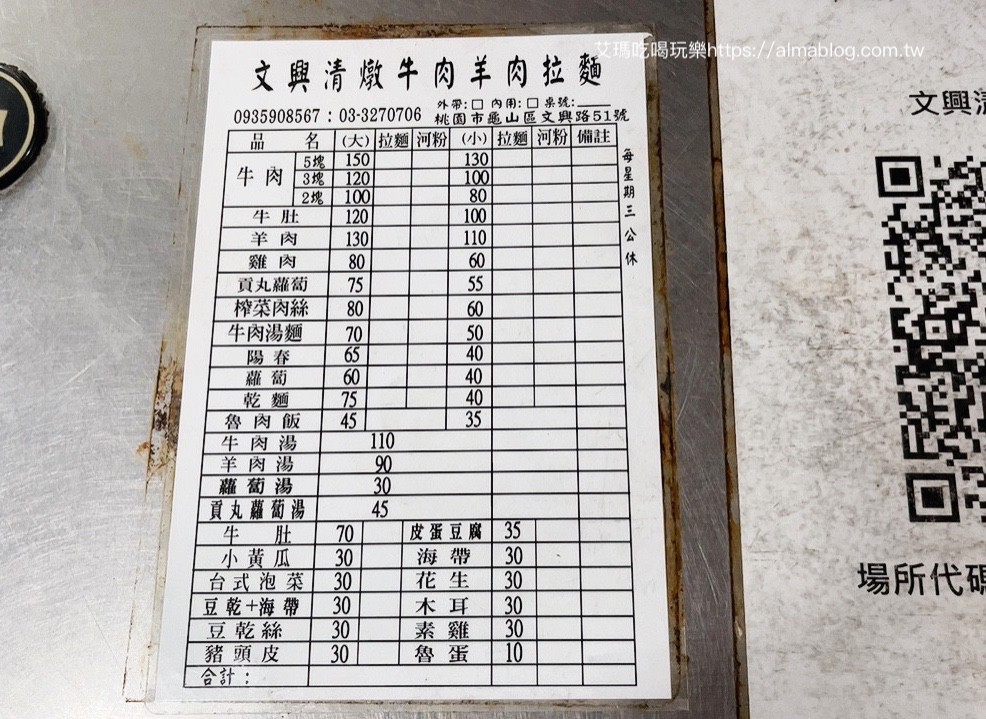 艾瑪吃喝玩樂https://almablog.com.tw
文興清燉牛肉羊肉拉麵
外帶:□ 內用:□ 桌號:____
0935908567:03-3270706 桃園市龜山區文興路51號
品名 (大) 拉麵 河粉 (小) 拉麵 河粉 備註
牛肉 5塊 150 130
3塊 120 100
2塊 100 80
牛肚 120 100
羊肉 130 110
雞肉 80 60
貢丸蘿蔔 75 55
榨菜肉絲 80 60
牛肉湯麵 70 50
陽春 65 40
蘿蔔 60 40
乾麵 75 40
魯肉飯 45 35
牛肉湯 110
羊肉湯 90
蘿蔔湯 30
貢丸蘿蔔湯 45
牛肚 70 皮蛋豆腐 35
小黃瓜 30 海帶 30
台式泡菜 30 花生 30
豆乾+海帶 30 木耳 30
豆乾絲 30 素雞 30
豬頭皮 30 魯蛋 10
合計:
每星期三公休
文興清
場所代碼